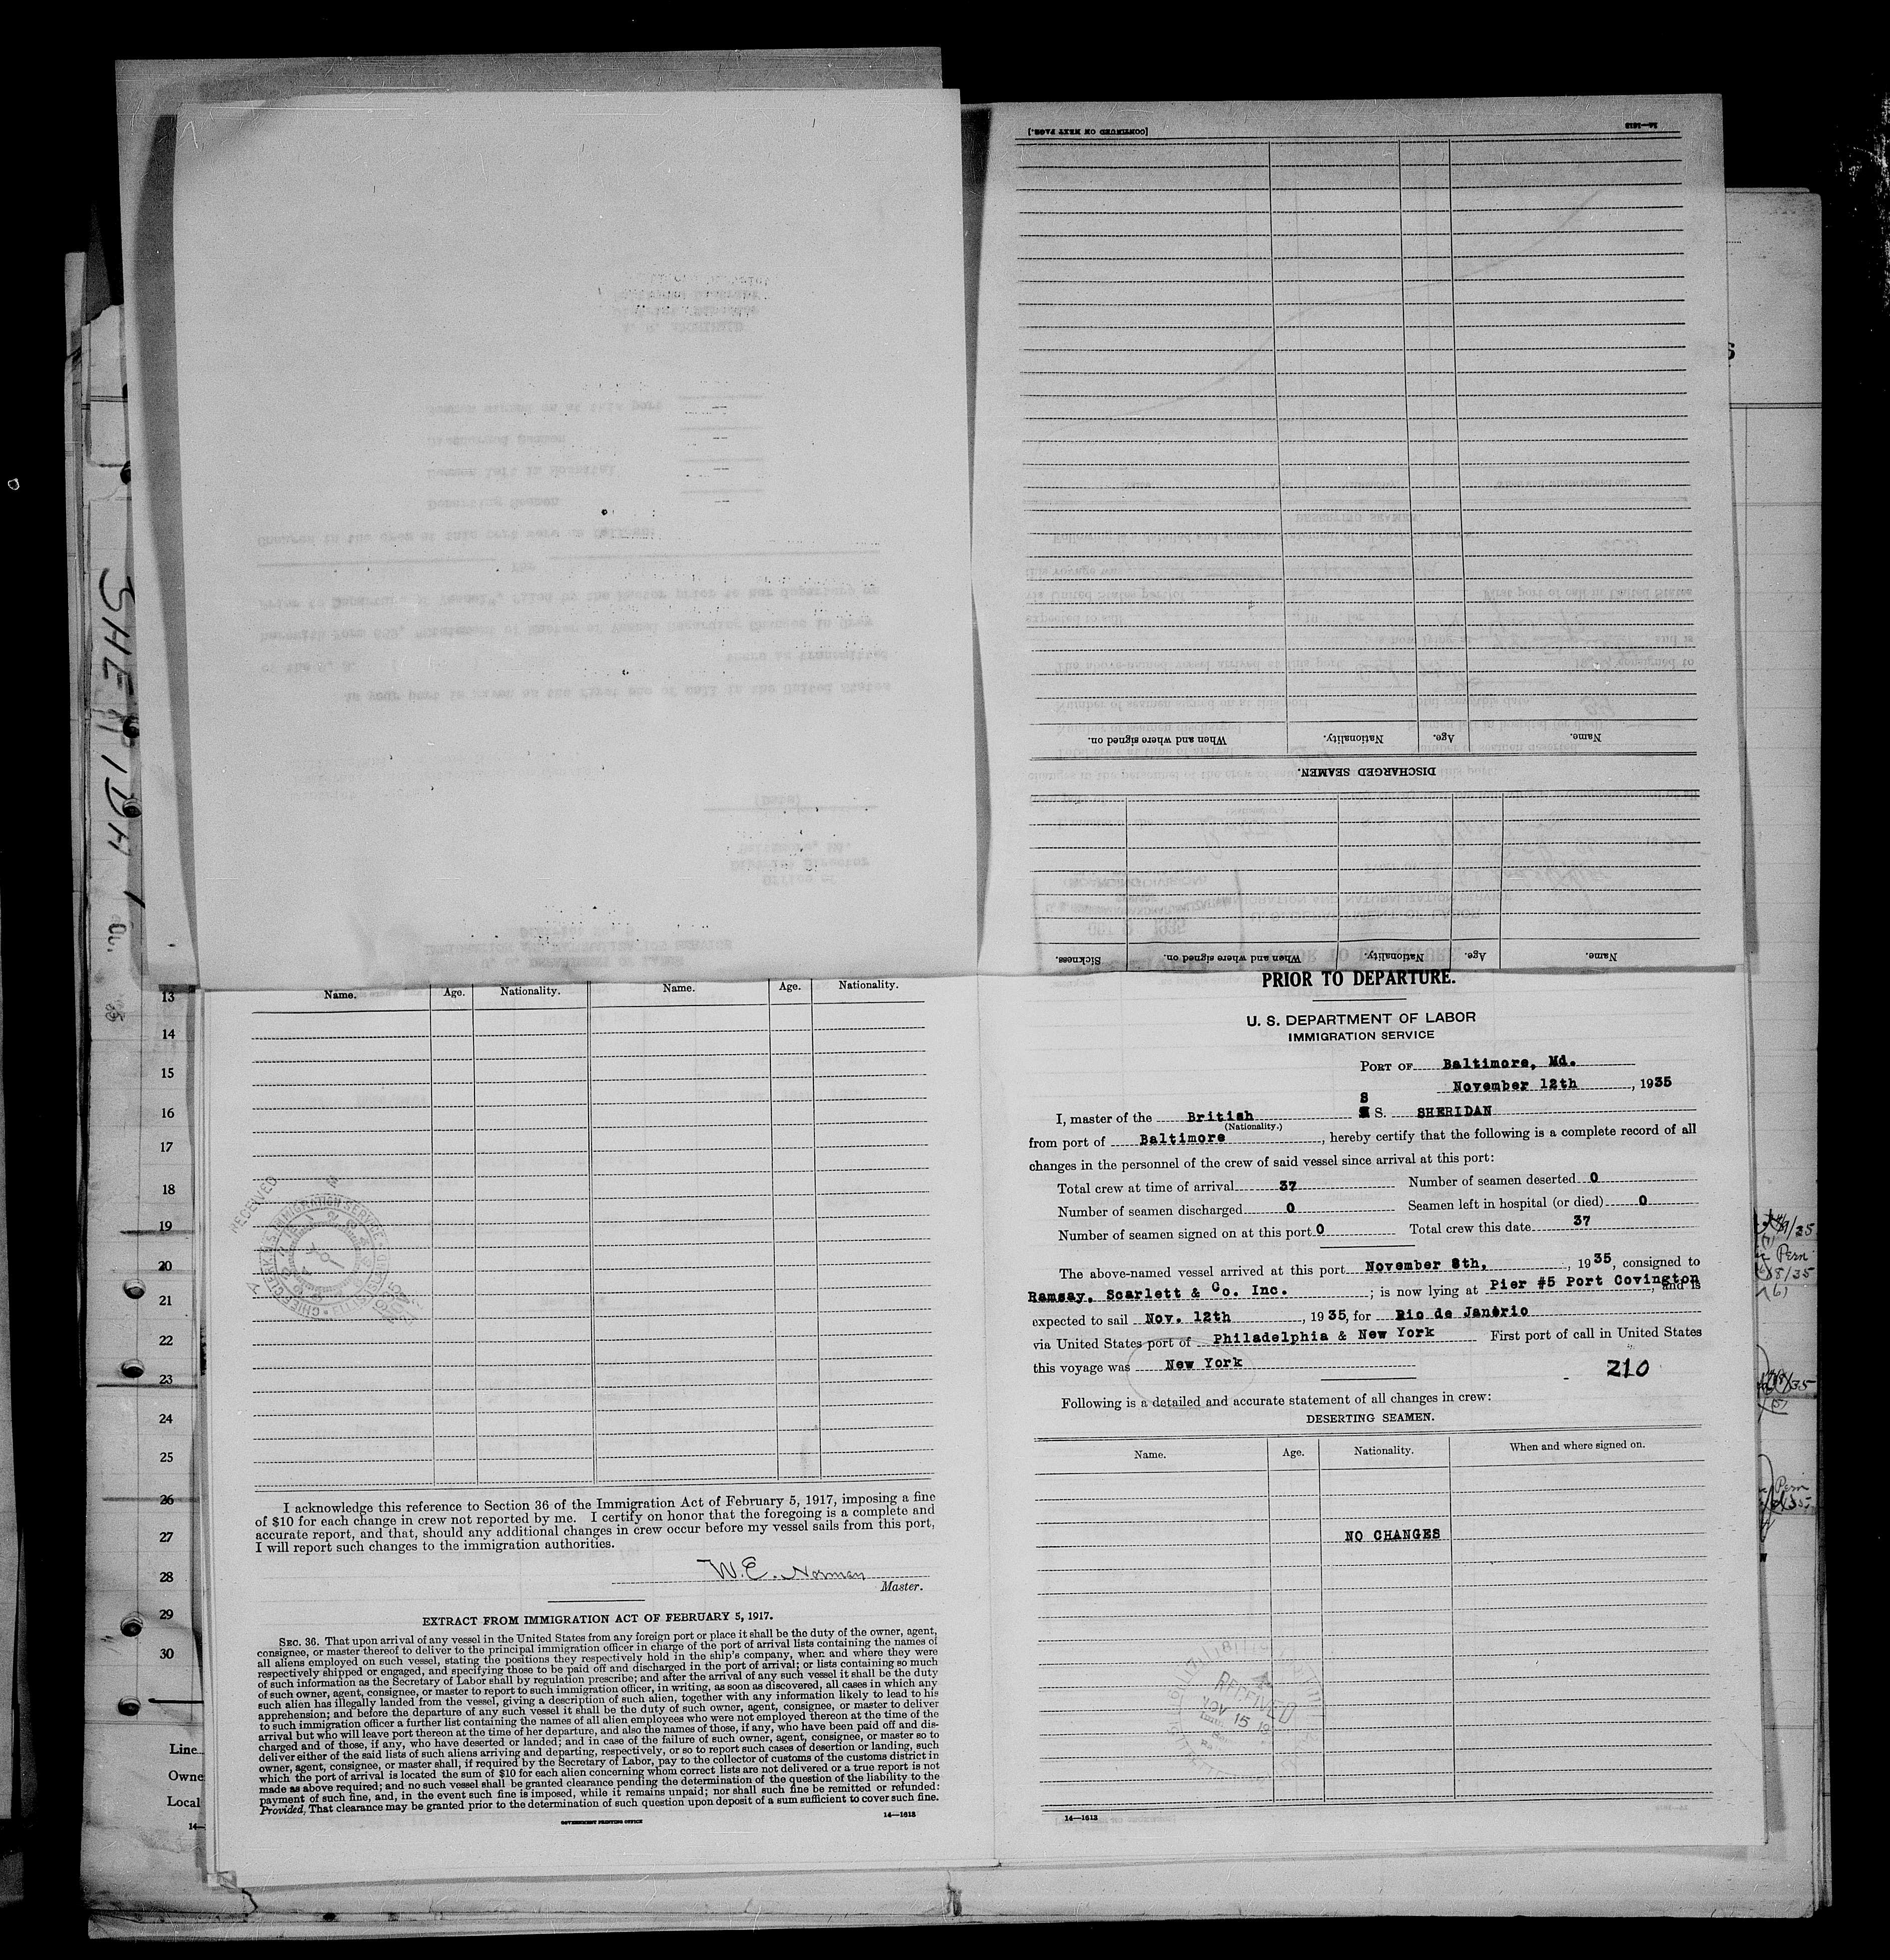 SHERIDAN
13
14
15
16
17
18
19
20
21
22
23
24
25
26
27
28
29
30
Line
Owne
Local
14—
[CONTINUED ON NEXT PAGE.]
14—1613
When and where signed on. Nationality. Age. Name.
DISCHARGED SEAMEN.
Sickness. When and where signed on. Nationality. Age. Name.
Name. Age. Nationality. Name. Age. Nationality.
RECEIVED
I acknowledge this reference to Section 36 of the Immigration Act of February 5, 1917, imposing a fine
of $10 for each change in crew not reported by me. I certify on honor that the foregoing is a complete and
accurate report, and that, should any additional changes in crew occur before my vessel sails from this port,
I will report such changes to the immigration authorities.
W. E. Norman
Master.
EXTRACT FROM IMMIGRATION ACT OF FEBRUARY 5, 1917.
SEC. 36. That upon arrival of any vessel in the United States from any foreign port or place it shall be the duty of the owner, agent,
consignee, or master thereof to deliver to the principal immigration officer in charge of the port of arrival lists containing the names of
all aliens employed on such vessel, stating the positions they respectively hold in the ship's company, when and where they were
respectively shipped or engaged, and specifying those to be paid off and discharged in the port of arrival; or lists containing so much
of such information as the Secretary of Labor shall by regulation prescribe; and after the arrival of any such vessel it shall be the duty
of such owner, agent, consignee, or master to report to such immigration officer, in writing, as soon as discovered, all cases in which any
such alien has illegally landed from the vessel, giving a description of such alien, together with any information likely to lead to his
apprehension; and before the departure of any such vessel it shall be the duty of such owner, agent, consignee, or master to deliver
to such immigration officer a further list containing the names of all alien employees who were not employed thereon at the time of the
arrival but who will leave port thereon at the time of her departure, and also the names of those, if any, who have been paid off and dis-
charged and of those, if any, who have deserted or landed; and in case of the failure of such owner, agent, consignee, or master so to
deliver either of the said lists of such aliens arriving and departing, respectively, or so to report such cases of desertion or landing, such
owner, agent, consignee, or master shall, if required by the Secretary of Labor, pay to the collector of customs of the customs district in
which the port of arrival is located the sum of $10 for each alien concerning whom correct lists are not delivered or a true report is not
made as above required; and no such vessel shall be granted clearance pending the determination of the question of the liability to the
payment of such fine, and, in the event such fine is imposed, while it remains unpaid; nor shall such fine be remitted or refunded:
Provided, That clearance may be granted prior to the determination of such question upon deposit of a sum sufficient to cover such fine.
GOVERNMENT PRINTING OFFICE 14—1613
PRIOR TO DEPARTURE.
U. S. DEPARTMENT OF LABOR
IMMIGRATION SERVICE
PORT OF Baltimore, Md.
November 12th, 1935
I, master of the British S S. SHERIDAN
(Nationality.)
from port of Baltimore, hereby certify that the following is a complete record of all
changes in the personnel of the crew of said vessel since arrival at this port:
Total crew at time of arrival 37 Number of seamen deserted 0
Number of seamen discharged 0 Seamen left in hospital (or died) 0
Number of seamen signed on at this port 0 Total crew this date 37
The above-named vessel arrived at this port November 8th, , 1935, consigned to
Ramsay, Scarlett & Co. Inc. ; is now lying at Pier #5 Port Covington, and is
expected to sail Nov. 12th, 1935, for Rio de Janerio
via United States port of Philadelphia & New York First port of call in United States
this voyage was New York
210
Following is a detailed and accurate statement of all changes in crew:
DESERTING SEAMEN.
Name. Age. Nationality. When and where signed on.
NO CHANGES
RECEIVED
NOV 15 19
14—1613